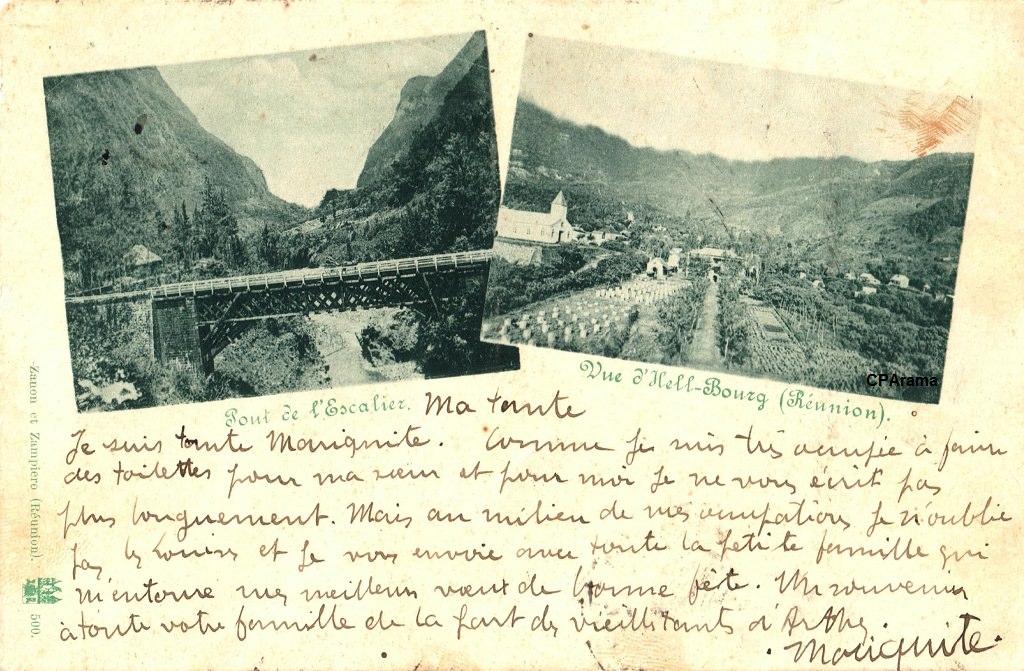 Pont de l'Escalier.
Vue d'Hell-Bourg (Réunion).
CPArama
Zanon et Zampiero (Réunion).
500.
Ma tante
Je suis tante Mariquite. Comme je suis très occupée à faire
des toilettes pour ma sœur et pour moi je ne vous écrit pas
plus longuement. Mais au milieu de mes occupations je n'oublie
pas les Louises et je vous envoie avec toute la petite famille qui
m'entoure mes meilleurs vœux de bonne fête. Un souvenir
à toute votre famille de la part des vieilles tantes d'
Mariquite.